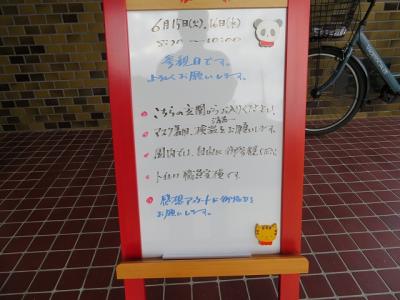 6月15日(火)、16日(水)
参観日です。
よろしくお願いします。
こちらの玄関からお入りください。
マスク着用、検温、消毒をお願いします。
園内では、自由に御参観ください
トイレは職員室横です。
感想アンケートに御協力を
お願いします。